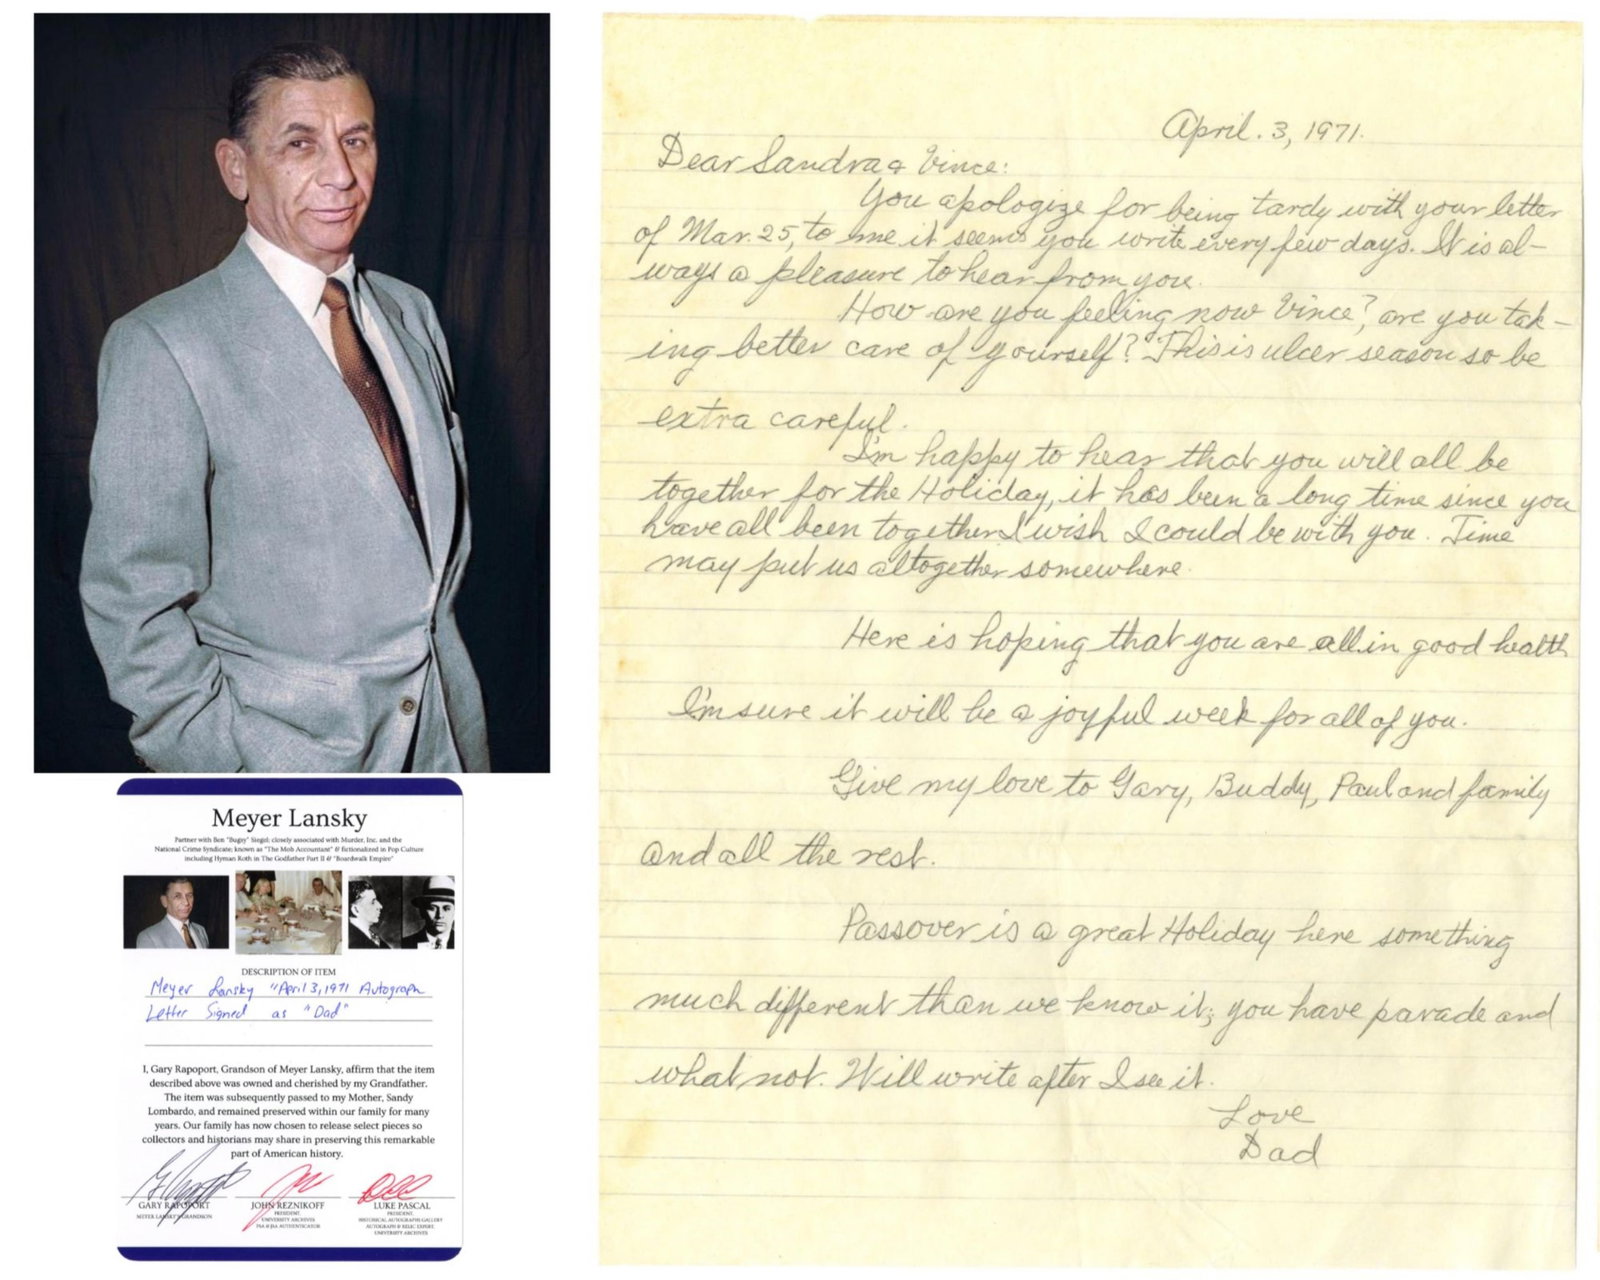 April. 3, 1971.
Dear Sandra & Vince:
You apologize for being tardy with your letter
of Mar. 25, to me it seems you write every few days. It is al-
ways a pleasure to hear from you.
How are you feeling now Vince?, are you tak-
ing better care of yourself? This is ulcer season so be
extra careful.
I'm happy to hear that you will all be
together for the Holiday, it has been a long time since you
have all been together I wish I could be with you. Time
may put us altogether somewhere.
Here is hoping that you are all in good health
I'm sure it will be a joyful week for all of you.
Give my love to Gary, Buddy, Paul and family
and all the rest.
Passover is a great Holiday here something
much different than we know it; you have parade and
what not. Will write after I see it.
Love
Dad
Meyer Lansky
Partner with Ben "Bugsy" Siegel; closely associated with Murder, Inc. and the
National Crime Syndicate; known as "The Mob Accountant" & fictionalized in Pop Culture
including Hyman Roth in The Godfather Part II & "Boardwalk Empire"
DESCRIPTION OF ITEM
Meyer Lansky "April 3, 1971 Autograph
Letter Signed as "Dad"
I, Gary Rapoport, Grandson of Meyer Lansky, affirm that the item
described above was owned and cherished by my Grandfather.
The item was subsequently passed to my Mother, Sandy
Lombardo, and remained preserved within our family for many
years. Our family has now chosen to release select pieces so
collectors and historians may share in preserving this remarkable
part of American history.
GARY RAPOPORT
MEYER LANSKY'S GRANDSON
JOHN REZNIKOFF
PRESIDENT,
UNIVERSITY ARCHIVES
PSA & JSA AUTHENTICATOR
LUKE PASCAL
PRESIDENT,
HISTORICAL AUTOGRAPHS GALLERY
AUTOGRAPH & RELIC EXPERT,
UNIVERSITY ARCHIVES